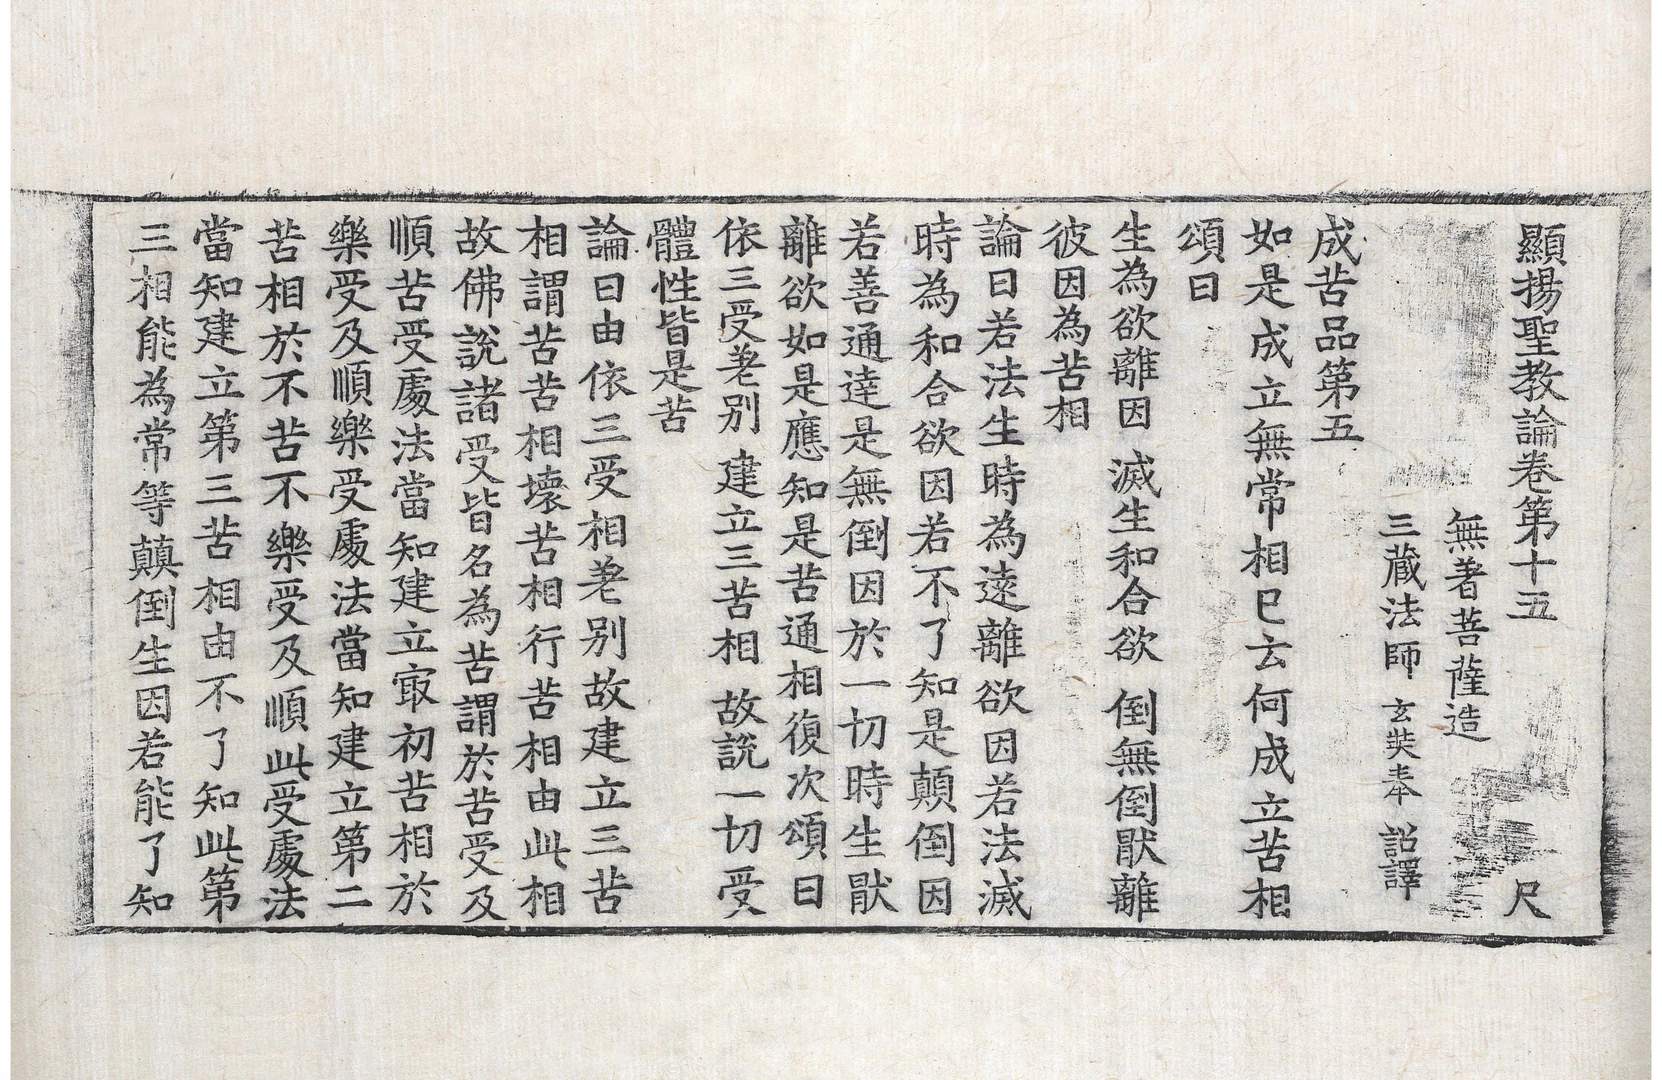 顯揚聖教論卷第十五 尺
無著菩薩造
三蔵法師 玄奘奉 詔譯
成苦品第五
如是成立無常相已云何成立苦相
頌曰
生為欲離因 滅生和合欲 倒無倒猒離
彼因為苦相
論曰若法生時為遠離欲因若法滅
時為和合欲因若不了知是顛倒因
若善通達是無倒因於一切時生猒
離欲如是應知是苦通相復次頌曰
依三受差别 建立三苦相 故説一切受
體性皆是苦
論曰由依三受相差别故建立三苦
相謂苦苦相壞苦相行苦相由此相
故佛說諸受皆名為苦謂於苦受及
順苦受處法當知建立㝡初苦相於
樂受及順樂受處法當知建立第二
苦相於不苦不樂受及順此受處法
當知建立第三苦相由不了知此第
三相能為常等顛倒生因若能了知